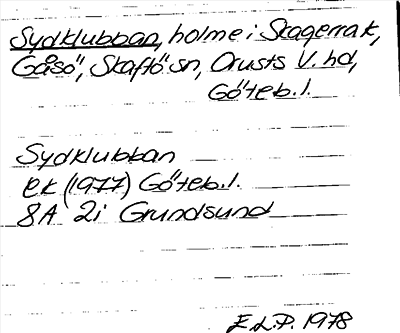 Sydklubban, holme i Skagerrak,
Gåsö, Skaftö sn, Orusts V. hd,
Göteb. l.
Sydklubban
ek (1977) Göteb. l.
8A 2i Grundsund
E.L.P. 1978